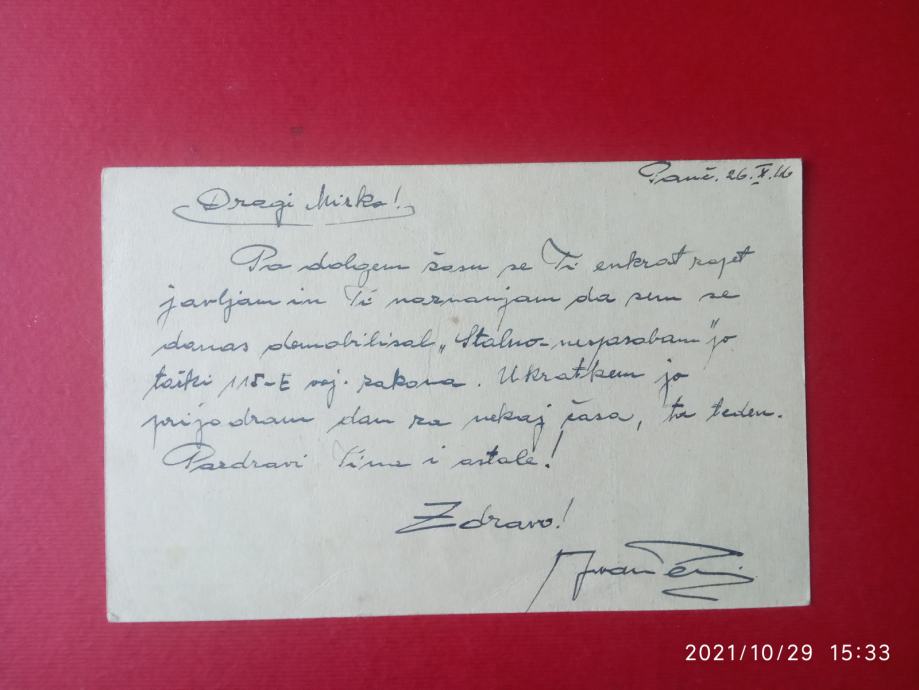 Panč. 26. X. 46
Dragi Mirko!
Po dolgem času se Ti enkrat zopet
javljam in Ti naznanjam da sem se
danas demobilisal „Stalno-nesposoban" po
točki 115-E voj. zakona. Ukratkem
dam za nekaj časa, ta teden.
Pozdravi Tine i ostale!
Zdravo!
Ivan
2021/10/29 15:33